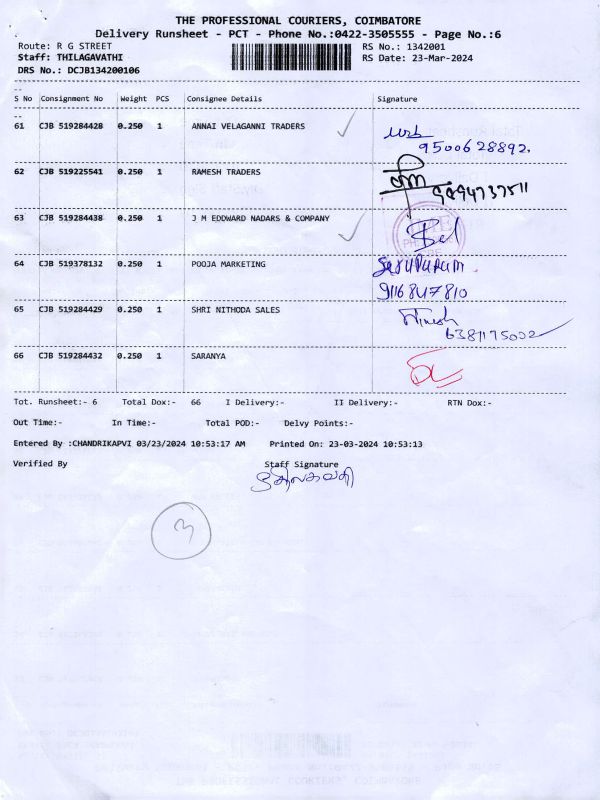 THE PROFESSIONAL COURIERS, COIMBATORE
Delivery Runsheet - PCT - Phone No.:0422-3505555 - Page No.:6
Route: R G STREET RS No.: 1342001
Staff: THILAGAVATHI RS Date: 23-Mar-2024
DRS No.: DCJB134200106
S No Consignment No Weight PCS Consignee Details Signature
61 CJB 519284428 0.250 1 ANNAI VELAGANNI TRADERS
9500628892.
62 CJB 519225541 0.250 1 RAMESH TRADERS
9894737511
63 CJB 519284438 0.250 1 J M EDDWARD NADARS & COMPANY
64 CJB 519378132 0.250 1 POOJA MARKETING
9116847810
65 CJB 519284429 0.250 1 SHRI NITHODA SALES
6381175002
66 CJB 519284432 0.250 1 SARANYA
Tot. Runsheet:- 6 Total Dox:- 66 I Delivery:- II Delivery:- RTN Dox:-
Out Time:- In Time:- Total POD:- Delvy Points:-
Entered By :CHANDRIKAPVI 03/23/2024 10:53:17 AM Printed On: 23-03-2024 10:53:13
Verified By Staff Signature
திலகவதி
3